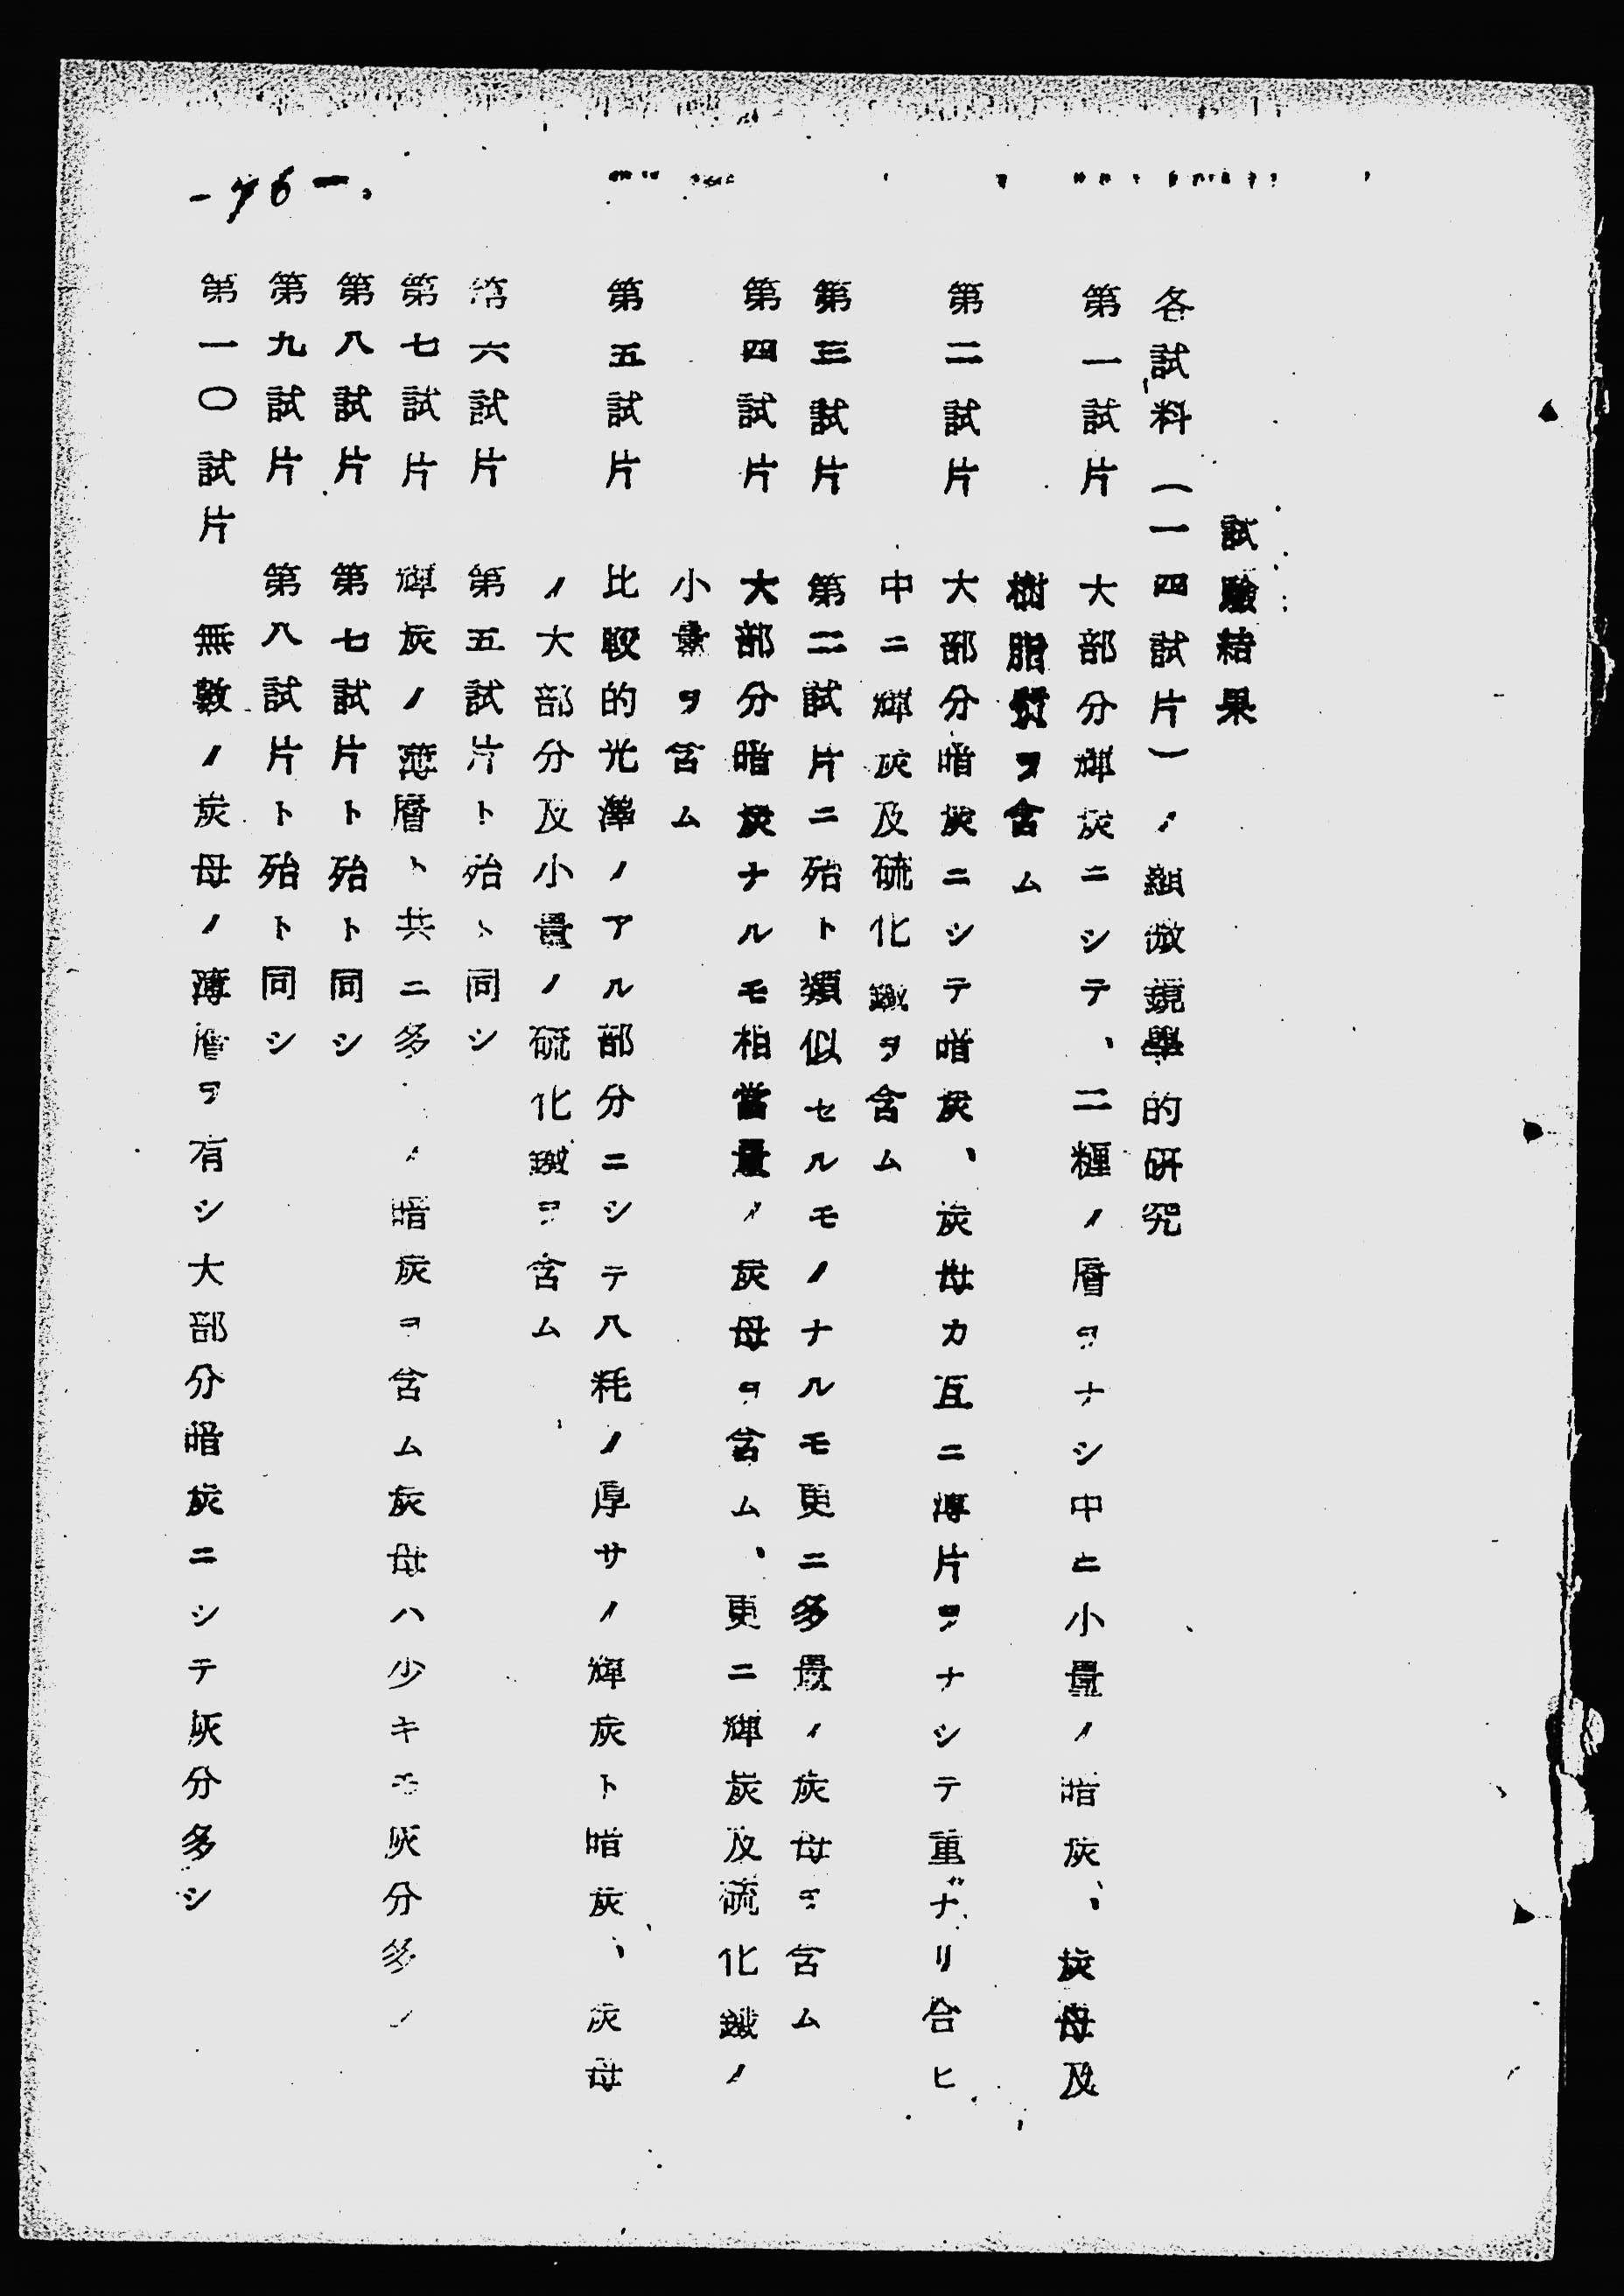 -76-
試驗結果
各試料(一四試片)ノ顯微鏡學的研究
第一試片 大部分輝炭ニシテ、二糎ノ層ヲナシ中ヒ小量ノ暗炭、炭母及
樹脂質ヲ含ム
第二試片 大部分暗炭ニシテ暗炭、炭母カ互ニ薄片ヲナシテ重ナリ合ヒ
中ニ輝炭及硫化鐵ヲ含ム
第三試片 第二試片ニ殆ト類似セルモノナルモ更ニ多量ノ炭母ヲ含ム
第四試片 大部分暗炭ナルモ相當量ノ炭母ヲ含ム、更ニ輝炭及硫化鐵ノ
小量ヲ含ム
第五試片 比較的光澤ノアル部分ニシテ八粍ノ厚サノ輝炭ト暗炭、炭母
ノ大部分及小量ノ硫化鐵ヲ含ム
第六試片 第五試片ト殆ト同シ
第七試片 輝炭ノ薄層ト共ニ多 ノ暗炭ヲ含ム炭母ハ少キモ灰分多
第八試片 第七試片ト殆ト同シ
第九試片 第八試片ト殆ト同シ
第一〇試片 無數ノ炭母ノ薄層ヲ有シ大部分暗炭ニシテ灰分多シ